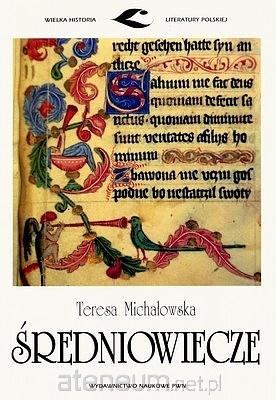 WIELKA HISTORIA LITERATURY POLSKIEJ
recht gesehen hatte syn an
thcze
Saluum me fac deus
quoniam defecit sa
ctus · quoniam diminute
sunt veritates a filijs ho
minum
Zbawona me vczin gos
podne bo nestatczil swoty
Teresa Michałowska
ŚREDNIOWIECZE
WYDAWNICTWO NAUKOWE PWN
ateneum.net.pl